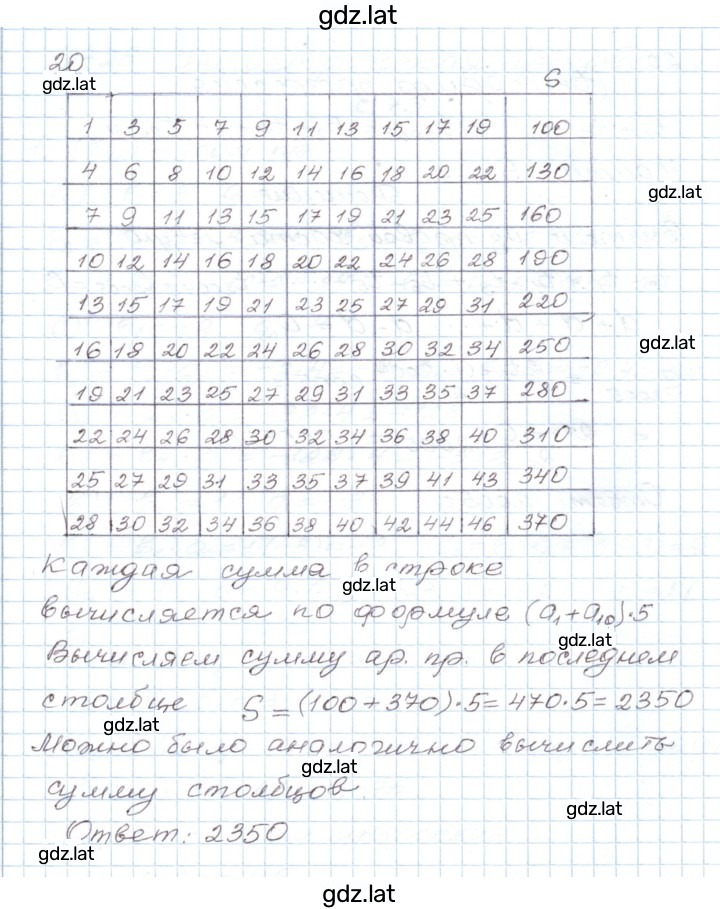 gdz.lat
20
gdz.lat
S
1 3 5 7 9 11 13 15 17 19 100
4 6 8 10 12 14 16 18 20 22 130
gdz.lat
7 9 11 13 15 17 19 21 23 25 160
10 12 14 16 18 20 22 24 26 28 190
13 15 17 19 21 23 25 27 29 31 220
gdz.lat
16 18 20 22 24 26 28 30 32 34 250
19 21 23 25 27 29 31 33 35 37 280
22 24 26 28 30 32 34 36 38 40 310
25 27 29 31 33 35 37 39 41 43 340
28 30 32 34 36 38 40 42 44 46 370
Каждая сумма в строке
gdz.lat
вычисляется по формуле (a₁+a₁₀)·5
gdz.lat
Вычисляем сумму ар. пр. в последнем
столбце S = (100+370)·5=470·5=2350
gdz.lat
Можно было аналогично вычислить
gdz.lat
сумму столбцов.
gdz.lat
Ответ: 2350
gdz.lat
gdz.lat